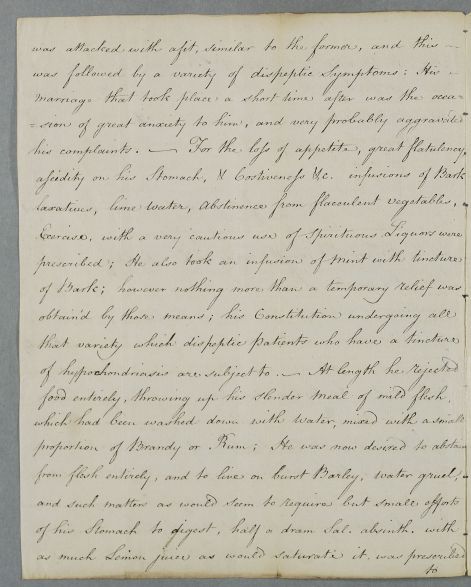 was attacked with a fit, similar to the former, and this —
was followed by a variety of dispeptic Symptoms: His —
marriage that took place a short time after was the occa=
=sion of great anxiety to him, and very probably aggravated
his complaints. — For the loss of appetite, great flatulency,
ascidity on his Stomach, & Costiveness &c. infusions of Bark
laxatives, lime water, Abstinence from flacculent vegetables,
Exercise, with a very cautious use of Spirituous Liquors were
prescribed; He also took an infusion of mint with tincture
of Bark; however nothing more than a temporary relief was
obtain'd by those means; his Constitution undergoing all
that variety which dispeptic patients who have a tincture
of hypochondriasis are subject to. — At length he rejected
food entirely, throwing up his slender meal of mild flesh
which had been washed down with water, mixed with a small
proportion of Brandy or Rum; He was now desired to abstain
from flesh entirely, and to live on burst Barley, water gruel,
and such matters as would seem to require but small efforts
of his Stomach to digest, half a dram Sal. absinth. with
as much Lemon juice as would saturate it, was prescribed
to